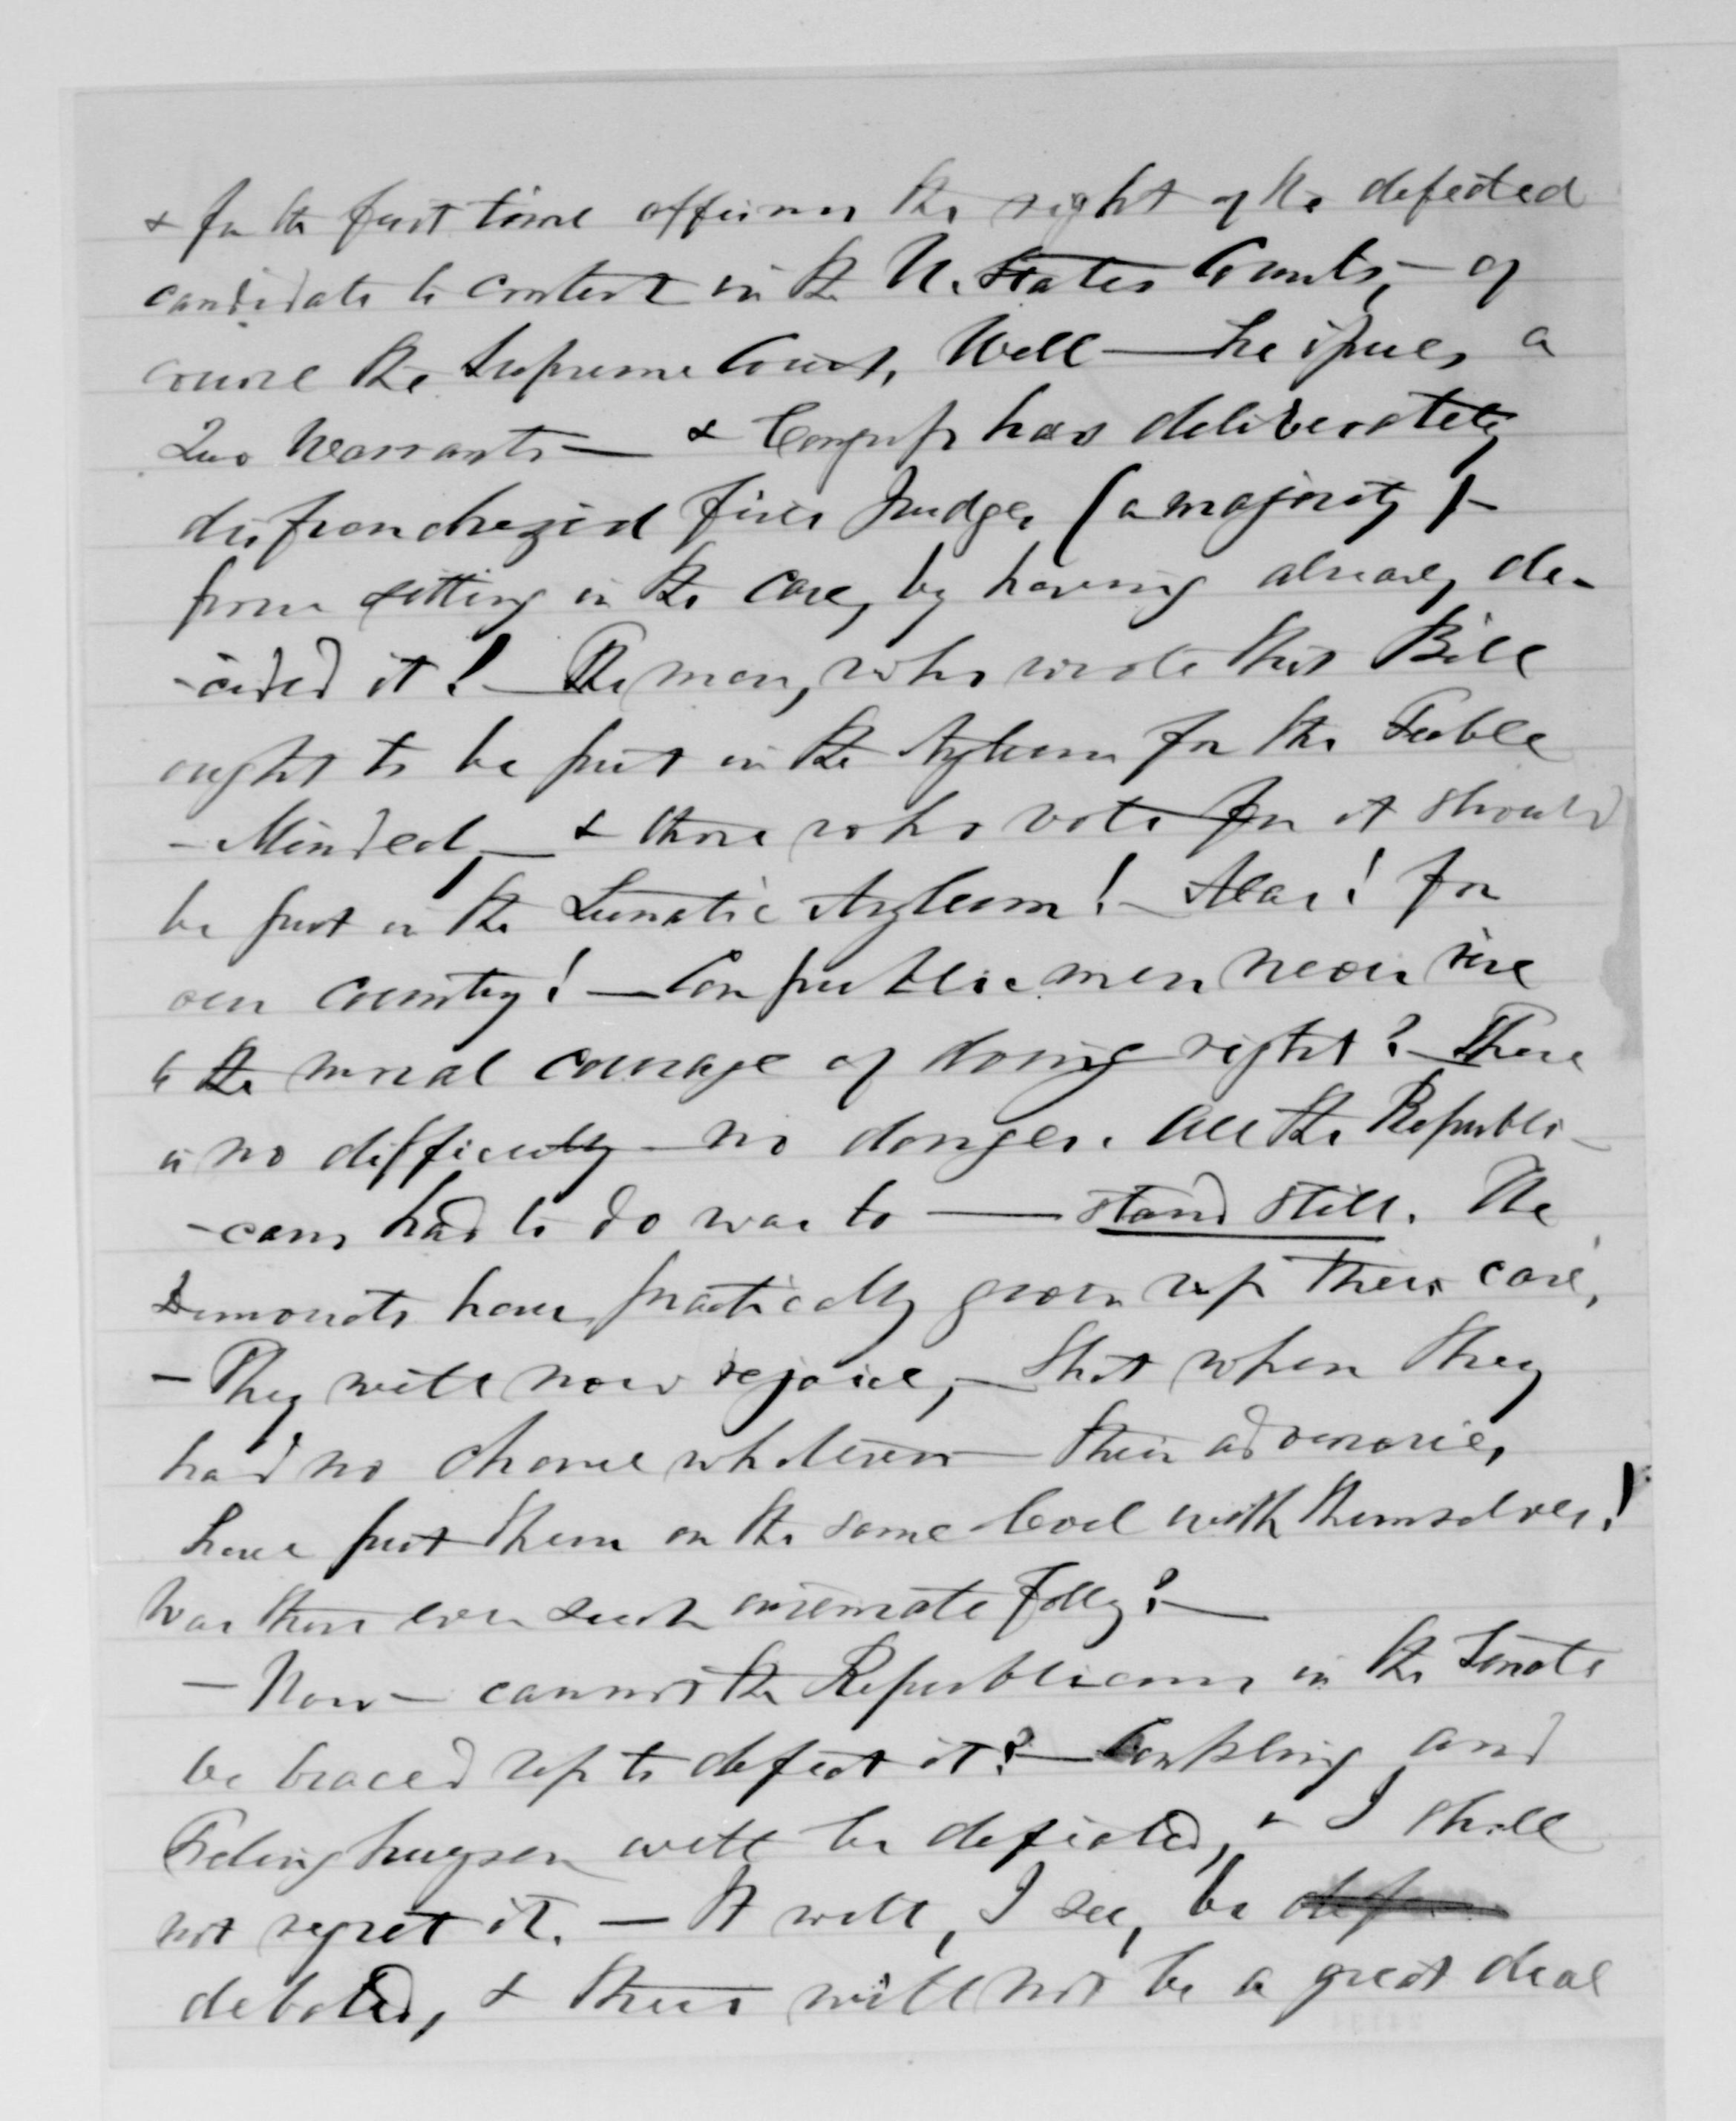 & for the first time affirms the right of the defeated
candidate to contest in the U. States Courts, — of
course the Supreme Court. Well — he issues a
Quo Warranto — & Congress has deliberately
disfranchized five Judges (a majority) —
from sitting in the case, by having already de-
-cided it! — The man, who wrote this Bill
ought to be put in the Asylum for the Feeble
- Minded, — & those who vote for it should
be put in the Lunatic Asylum! — Alas! for
our country! — Can public men never rise
to the moral courage of doing right? — There
is no difficulty — no danger. All the Republi-
-cans had to do was to — stand still. The
Democrats have practically given up their case,
— They will now rejoice, — that when they
had no chance whatever — their adversaries,
have put them on the same level with themselves!
Was there ever such folly? —
— Now — cannot the Republicans in the Senate
be braced up to defeat it? — Conkling and
Frelinghuysen will be defeated, & I shall
not regret it. — It will, I see, be
debated, & there will not be a great deal